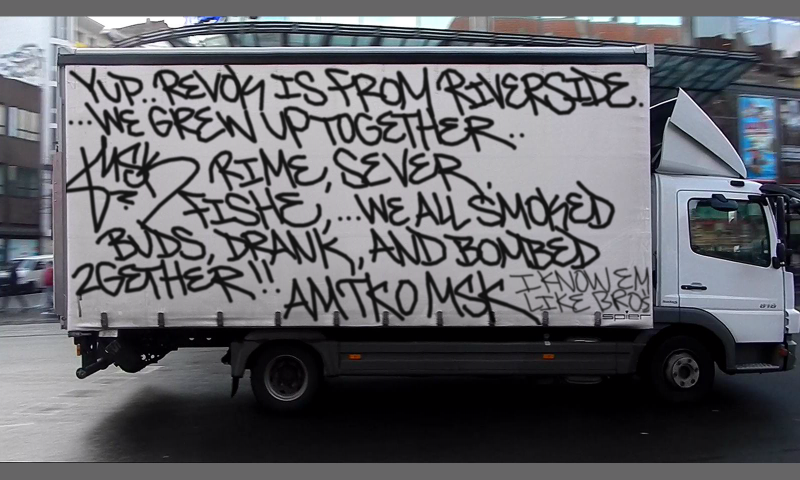 YUP.. REVOK IS FROM RIVERSIDE.
...WE GREW UP TOGETHER..
MSK RIME, SEVER.
& FISHE, ...WE ALL SMOKED
BUDS, DRANK, AND BOMBED
2GETHER!!
AMTKO MSK
I KNOW EM
LIKE BROS
spier
818